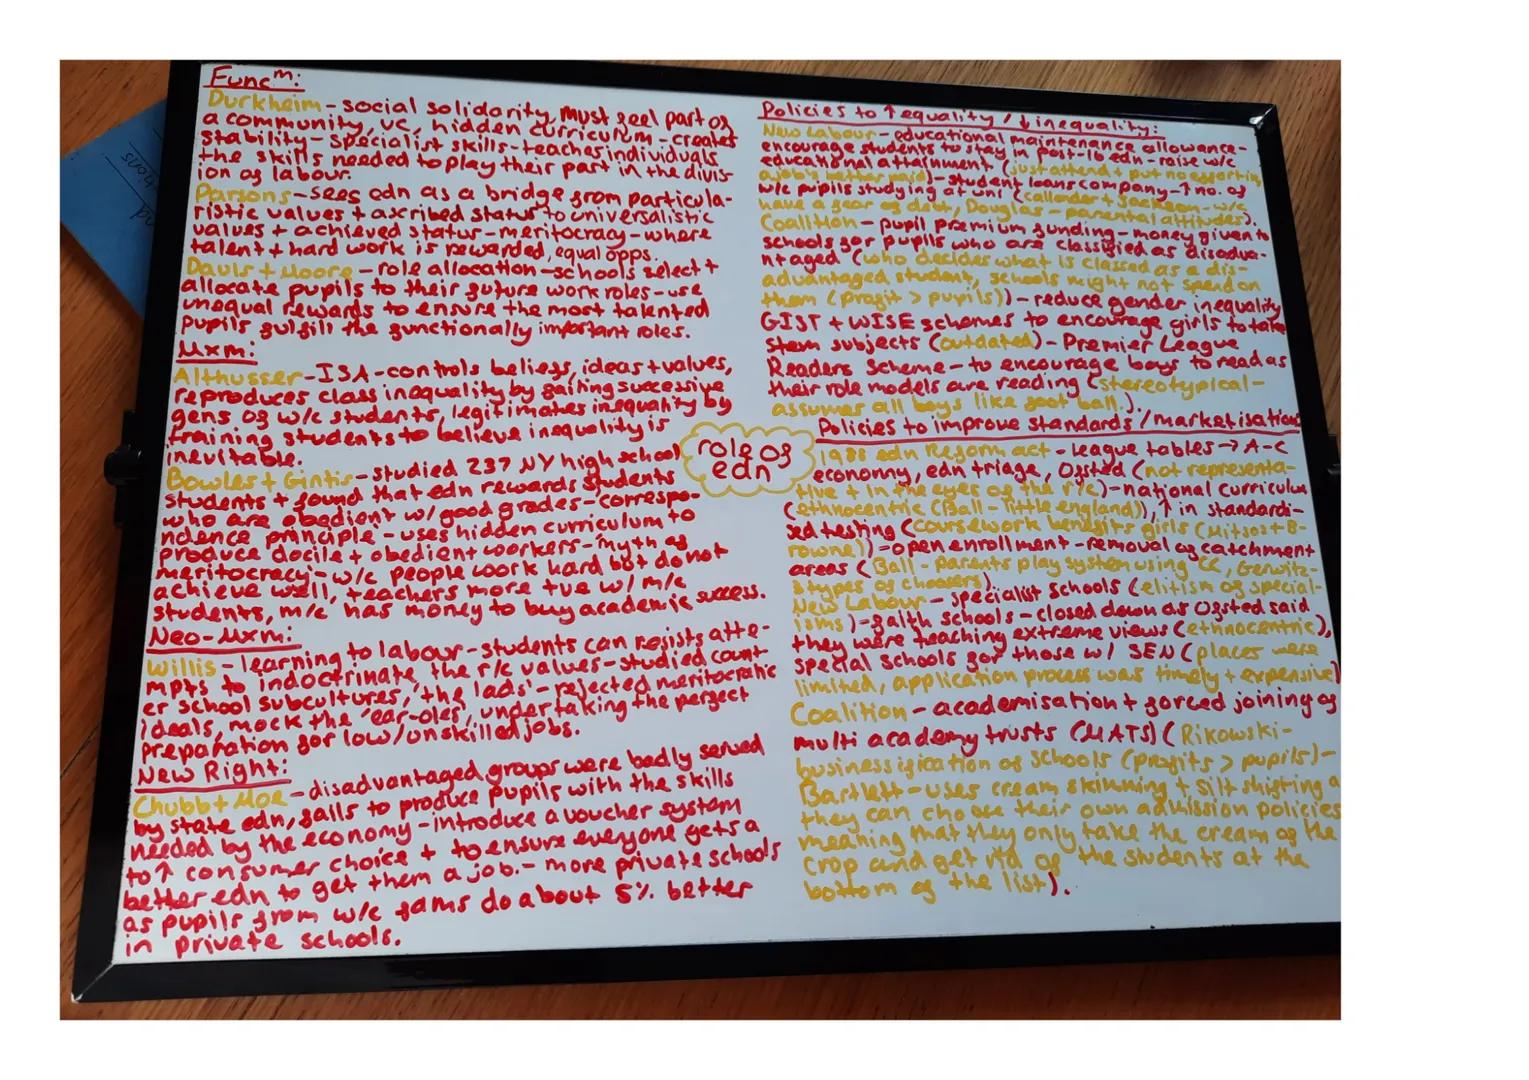 Func^m:
Durkheim - social solidarity, must feel part of
a community, VC, hidden curriculum - creates
stability - specialist skills - teaches individuals
the skills needed to play their part in the divis-
ion of labour.
Parsons - sees edn as a bridge from particula-
ristic values + axcribed status to universalistic
values + achieved status - meritocracy - where
talent + hard work is rewarded, equal opps.
Davis + Moore - role allocation - schools select +
allocate pupils to their future work roles - use
unequal rewards to ensure the most talented
pupils fulfill the functionally important roles.
Mxm:
Althusser - ISA - controls beliefs, ideas + values,
reproduces class inequality by failing successive
gens of w/c students, legitimates inequality by
training students to believe inequality is
inevitable.
Bowles + Gintis - studied 237 NY high school
students + found that edn rewards students
who are obedient w/ good grades - correspo-
ndence principle - uses hidden curriculum to
produce docile + obedient workers - myth of
meritocracy - w/c people work hard but do not
achieve well, teachers more +ve w/ m/c
students, m/c has money to buy academic success.
Neo-Mxm:
Willis - learning to labour - students can resists atte-
mpts to indoctrinate the r/c values - studied count-
er school subcultures, 'the lads' - rejected meritocratic
ideals, mock the 'ear-oles', undertaking the perfect
preparation for low/unskilled jobs.
New Right:
Chubb + Moe - disadvantaged groups were badly served
by state edn, fails to produce pupils with the skills
needed by the economy - introduce a voucher system
to ↑ consumer choice + to ensure everyone gets a
better edn to get them a job. - more private schools
as pupils from w/c fams do about 5% better
in private schools.
role of
edn
Policies to ↑ equality / ↓ inequality:
New Labour - educational maintenance allowance -
encourage students to stay in post-16 edn - raise w/c
educational attainment (just attend + put no effort in
a job's better paid) - student loans company - ↑ no. of
w/c pupils studying at uni (callender + Jackson - w/c
have a fear of debt, Douglas - parental attitudes).
Coalition - pupil premium funding - money given to
schools for pupils who are classified as disadva-
ntaged (who decides what is classed as a dis-
advantaged student, schools might not spend on
them (profit > pupils)) - reduce gender inequality
GIST + WISE schemes to encourage girls to take
stem subjects (outdated) - Premier League
Readers Scheme - to encourage boys to read as
their role models are reading (stereotypical -
assumes all boys like football.)
Policies to improve standards / marketisation
1988 edn Reform act - league tables → A-C
economy, edn triage, Ofsted (not representa-
tive + in the eyes of the r/c) - national curriculum
(ethnocentric (Ball - little england)), ↑ in standardi-
sed testing (coursework benefits girls (Mitsos + B-
rowne)) - open enrollment - removal of catchment
areas (Ball - parents play system using CC, Gerwitz -
3 types of choosers).
New Labour - specialist schools (elitism of special-
isms) - faith schools - closed down as Ofsted said
they were teaching extreme views (ethnocentric),
special schools for those w/ SEN (places were
limited, application process was timely + expensive)
Coalition - academisation + forced joining of
multi academy trusts (MATS) (Rikowski -
businessification of schools (profits > pupils) -
Bartlett - uses cream skimming + silt shifting a
they can choose their own admission policies
meaning that they only take the cream of the
crop and get rid of the students at the
bottom of the list).